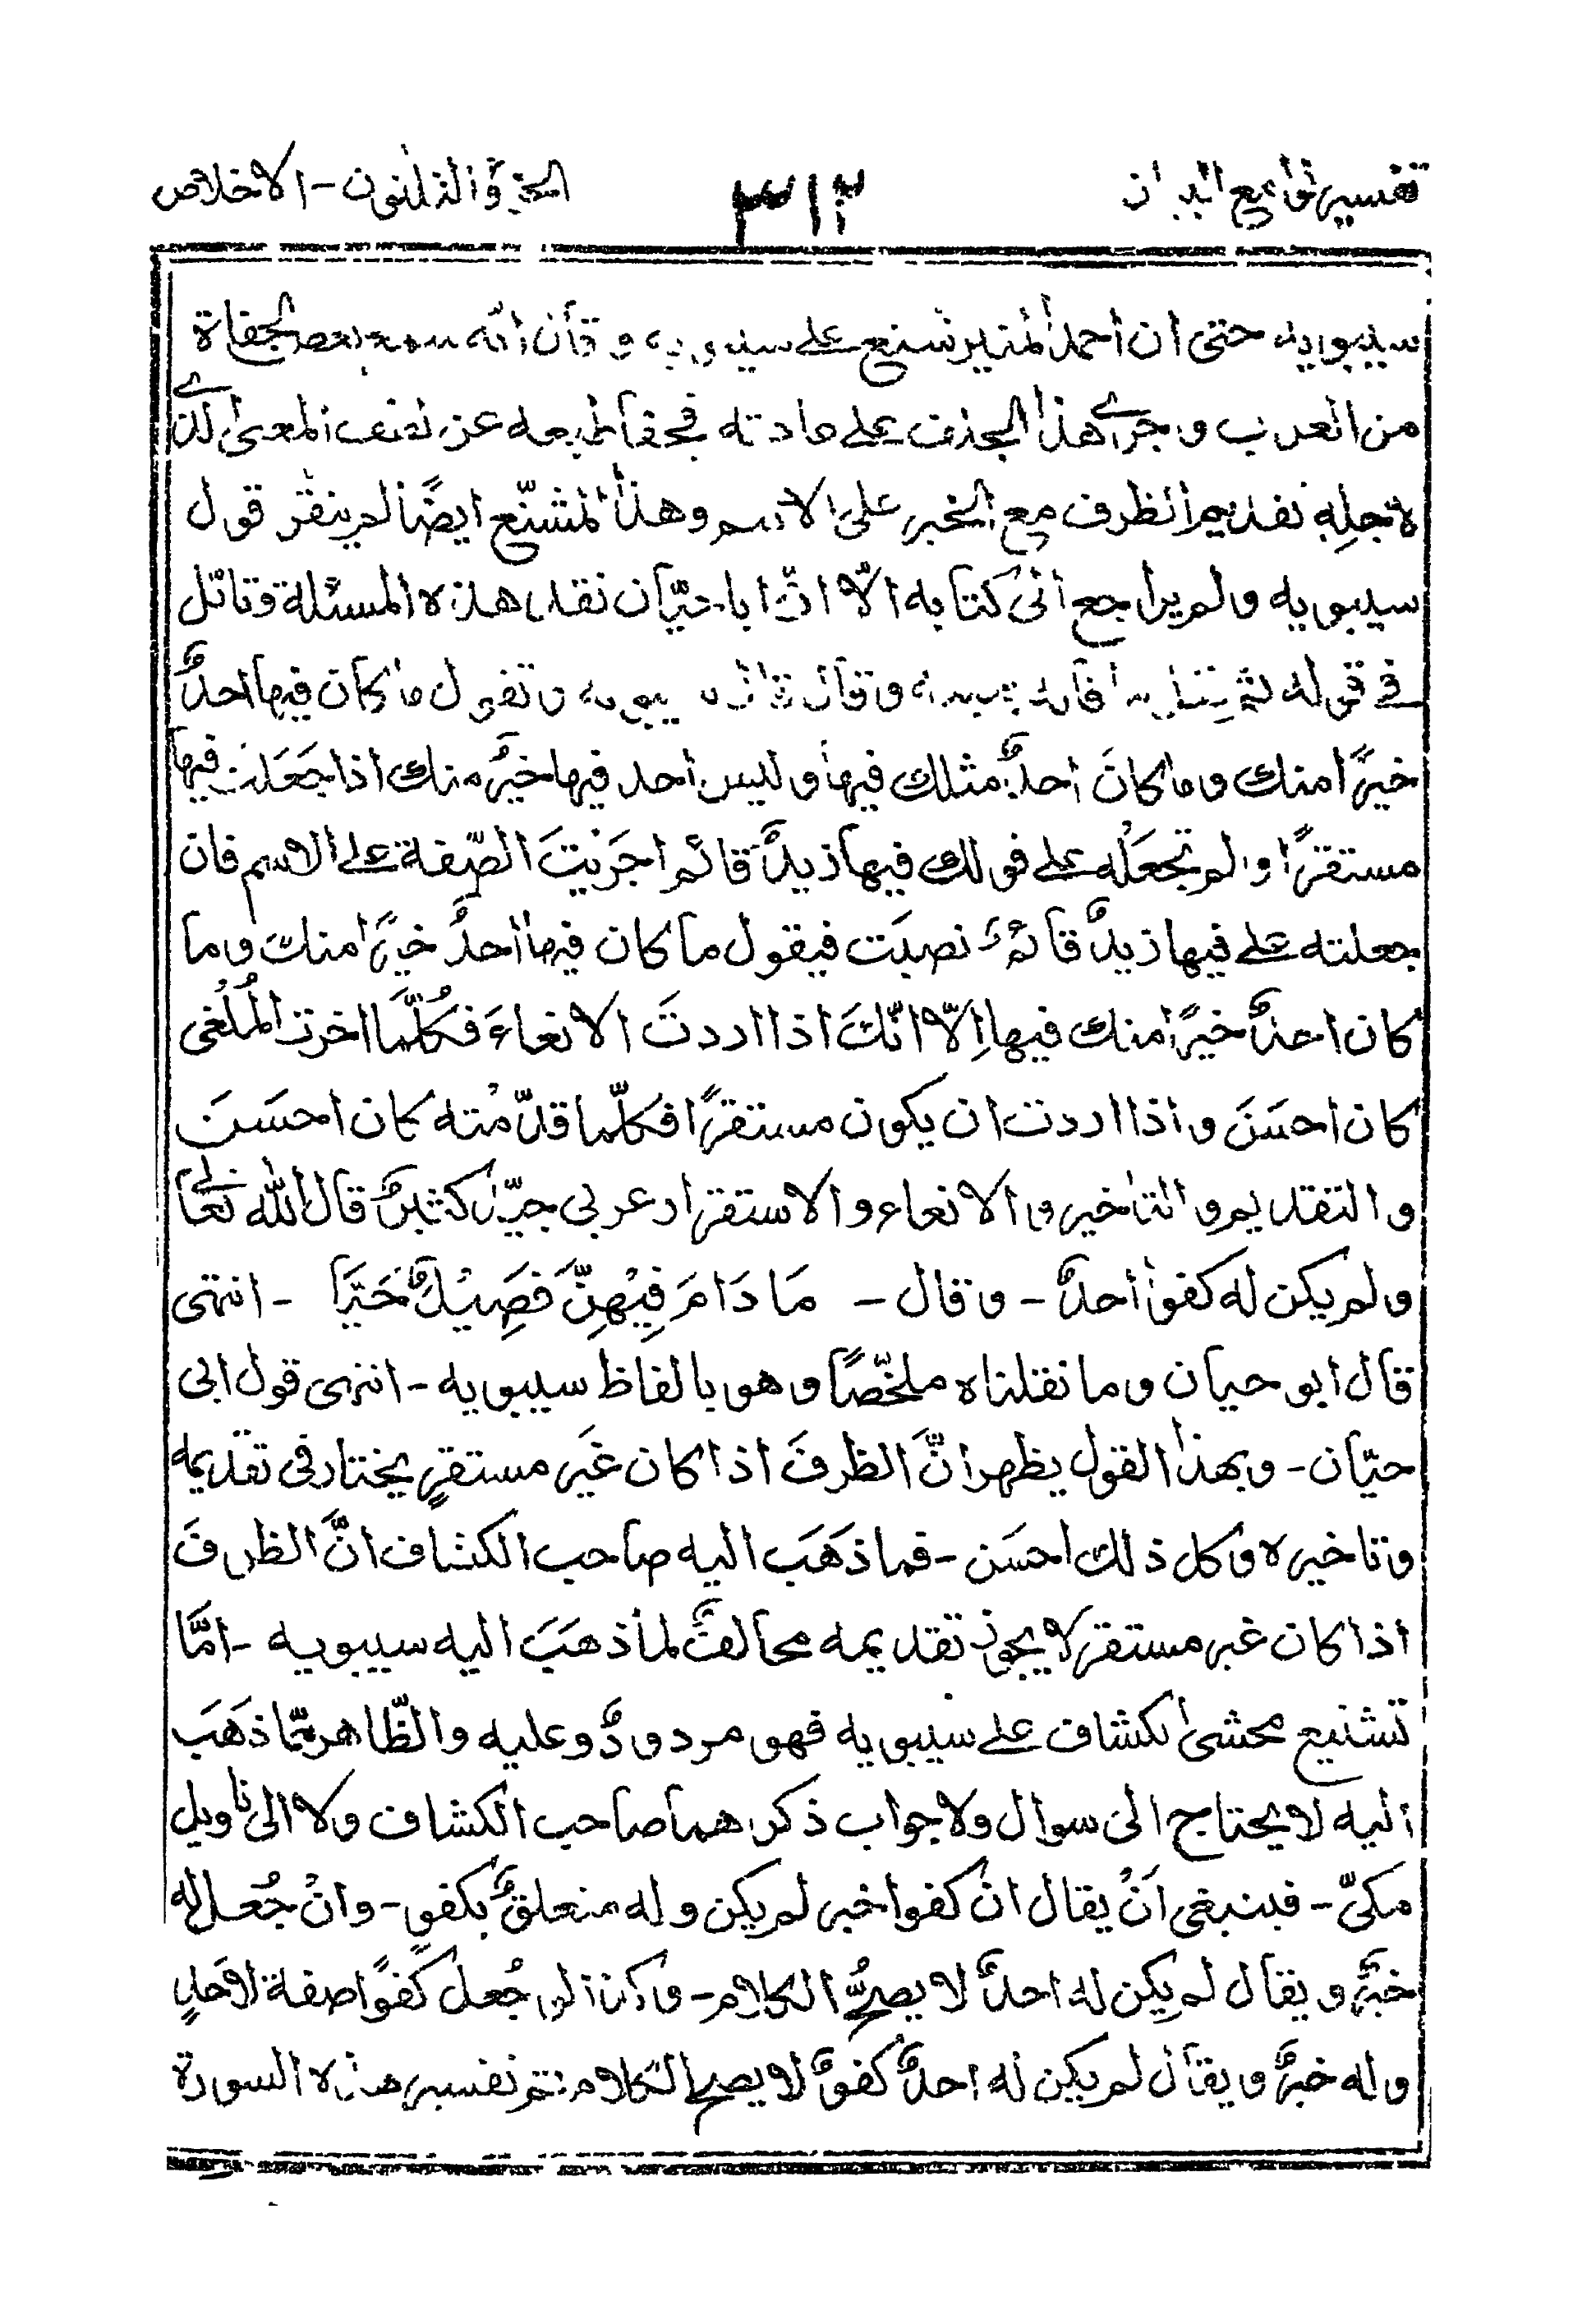 تفسير لوامع البيان ٣١٢ الجزء الثلثون - الاخلاص
سيبويه حتى ان احمد المنير شنع على سيبويه وقال انه سمع بعض الجفاة
من العرب وجرى هذا على عادته فجفا طبعه عن لطف المعنى الذى
لاجله تقديم الظرف مع الخبر على الاسم وهذا المشنّع ايضًا لم ينقر قول
سيبويه ولم يراجع الى كتابه الّا انّ ابا حيّان نقل هذه المسئلة وتاتل
فى قوله وقال سيبويه وتقول ما كان فيها احدٌ
خيرًا منك وما كانَ احدٌ مثلك فيها وليس احد فيها خيرٌ منك اذا جَعَلت فيها
مستقرًا ولم تجعَله على قولك فيها زيدٌ قائم اجرَيتَ الصّفة على الاسم فان
جعلته على فيها زيدٌ قائمٌ نصبَت فيقول ما كان فيها احدٌ خيرًا منك وما
كان احدٌ خيرًا منك فيها اِلّا انّكَ اذا اردتَ الالغاءَ فكُلَّما اخرت المُلغٰى
كان احسَنَ واذا اردت ان يكون مستقرًا فكلّما قدّمته كان احسَنَ
والتقديم والتاخير والالغاء والاستقرار عربى جيّدٌ كثيرٌ قال الله تعالى
ولم يكن له كفوا احدٌ - وقال - مَا دَامَ فِيْهِنَّ فَصِيْلٌ حَيًّا - انتهى
قال ابو حيان وما نقلناه ملخّصًا وهو بالفاظ سيبويه - انتهى قول ابى
حيّان - وبهذا القول يظهر انَّ الظرفَ اذا كان غَير مستقرٍ يختار فى تقديمه
وتاخيره وكل ذلك احسَن - فما ذَهَب اليه صاحب الكشاف انَّ الظرفَ
اذا كان غير مستقر لا يجوز تقديمه مخالفٌ لما ذهَبَ اليه سيبويه - امَّا
تشنيع محشى الكشاف على سيبويه فهو مردودٌ عليه والظّاهر ممّا ذهَب
اليه لا يحتاج الى سوال ولا جواب ذكرهما صاحب الكشاف ولا الى تاويل
مكىّ - فينبغى اَنْ يقال ان كفوا خبر لم يكن وله متعلقٌ بكفوٍ - وانْ جُعل له
خبرٌ ويقال لم يكن له احدٌ لا يصحُّ الكلام - وكذا لو جُعل كفوًا صفة لاحدٍ
وله خبرٌ ويقال لم يكن له احدٌ كفوٌ لا يصح الكلام تم تفسير هذه السورة